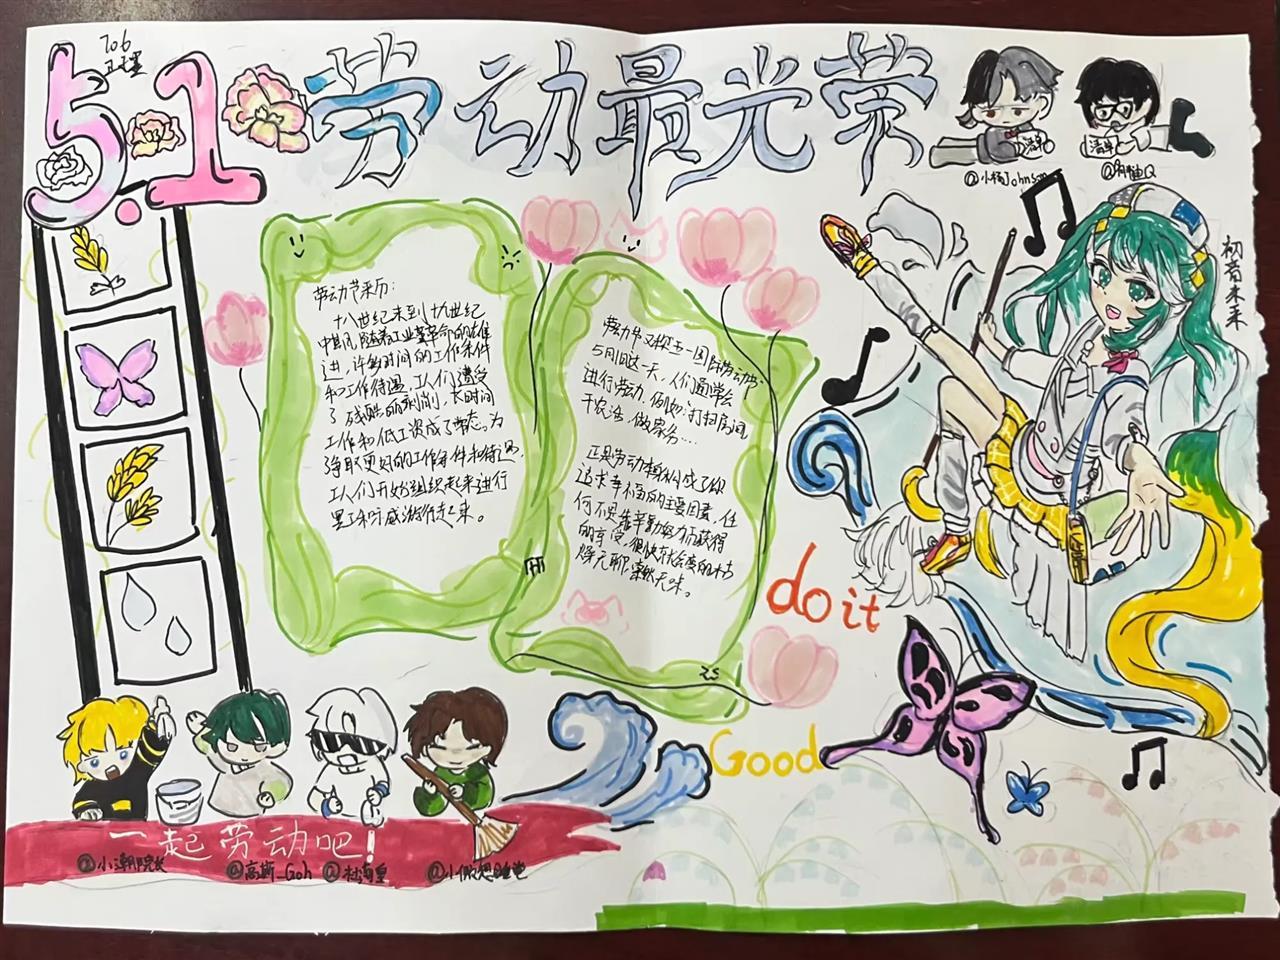 706
5.1 劳动最光荣
清单
清单
@小杨Johnson
初音未来
劳动节来历:
十八世纪末到十九世纪
中期,随着工业革命的推
进,许多时间的工作条件
和工作待遇,工人们遭受
了残酷的剥削,长时间
工作和低工资成了常态。为
争取更好的工作条件和待遇,
工人们开始组织起来进行
罢工和示威游行起来。
劳动节又称五一国际劳动节
5月1日这一天,人们通常会
进行劳动,例如:打扫房间
干农活,做家务....
正是劳动本身构成了你
追求幸福的主要因素,任
何不是靠辛勤努力而获得
的享受,很快就会变的枯
燥无聊,索然无味。
do it
Good
一起劳动吧!
@小潮院长
@高斯_Goh
@杜海皇